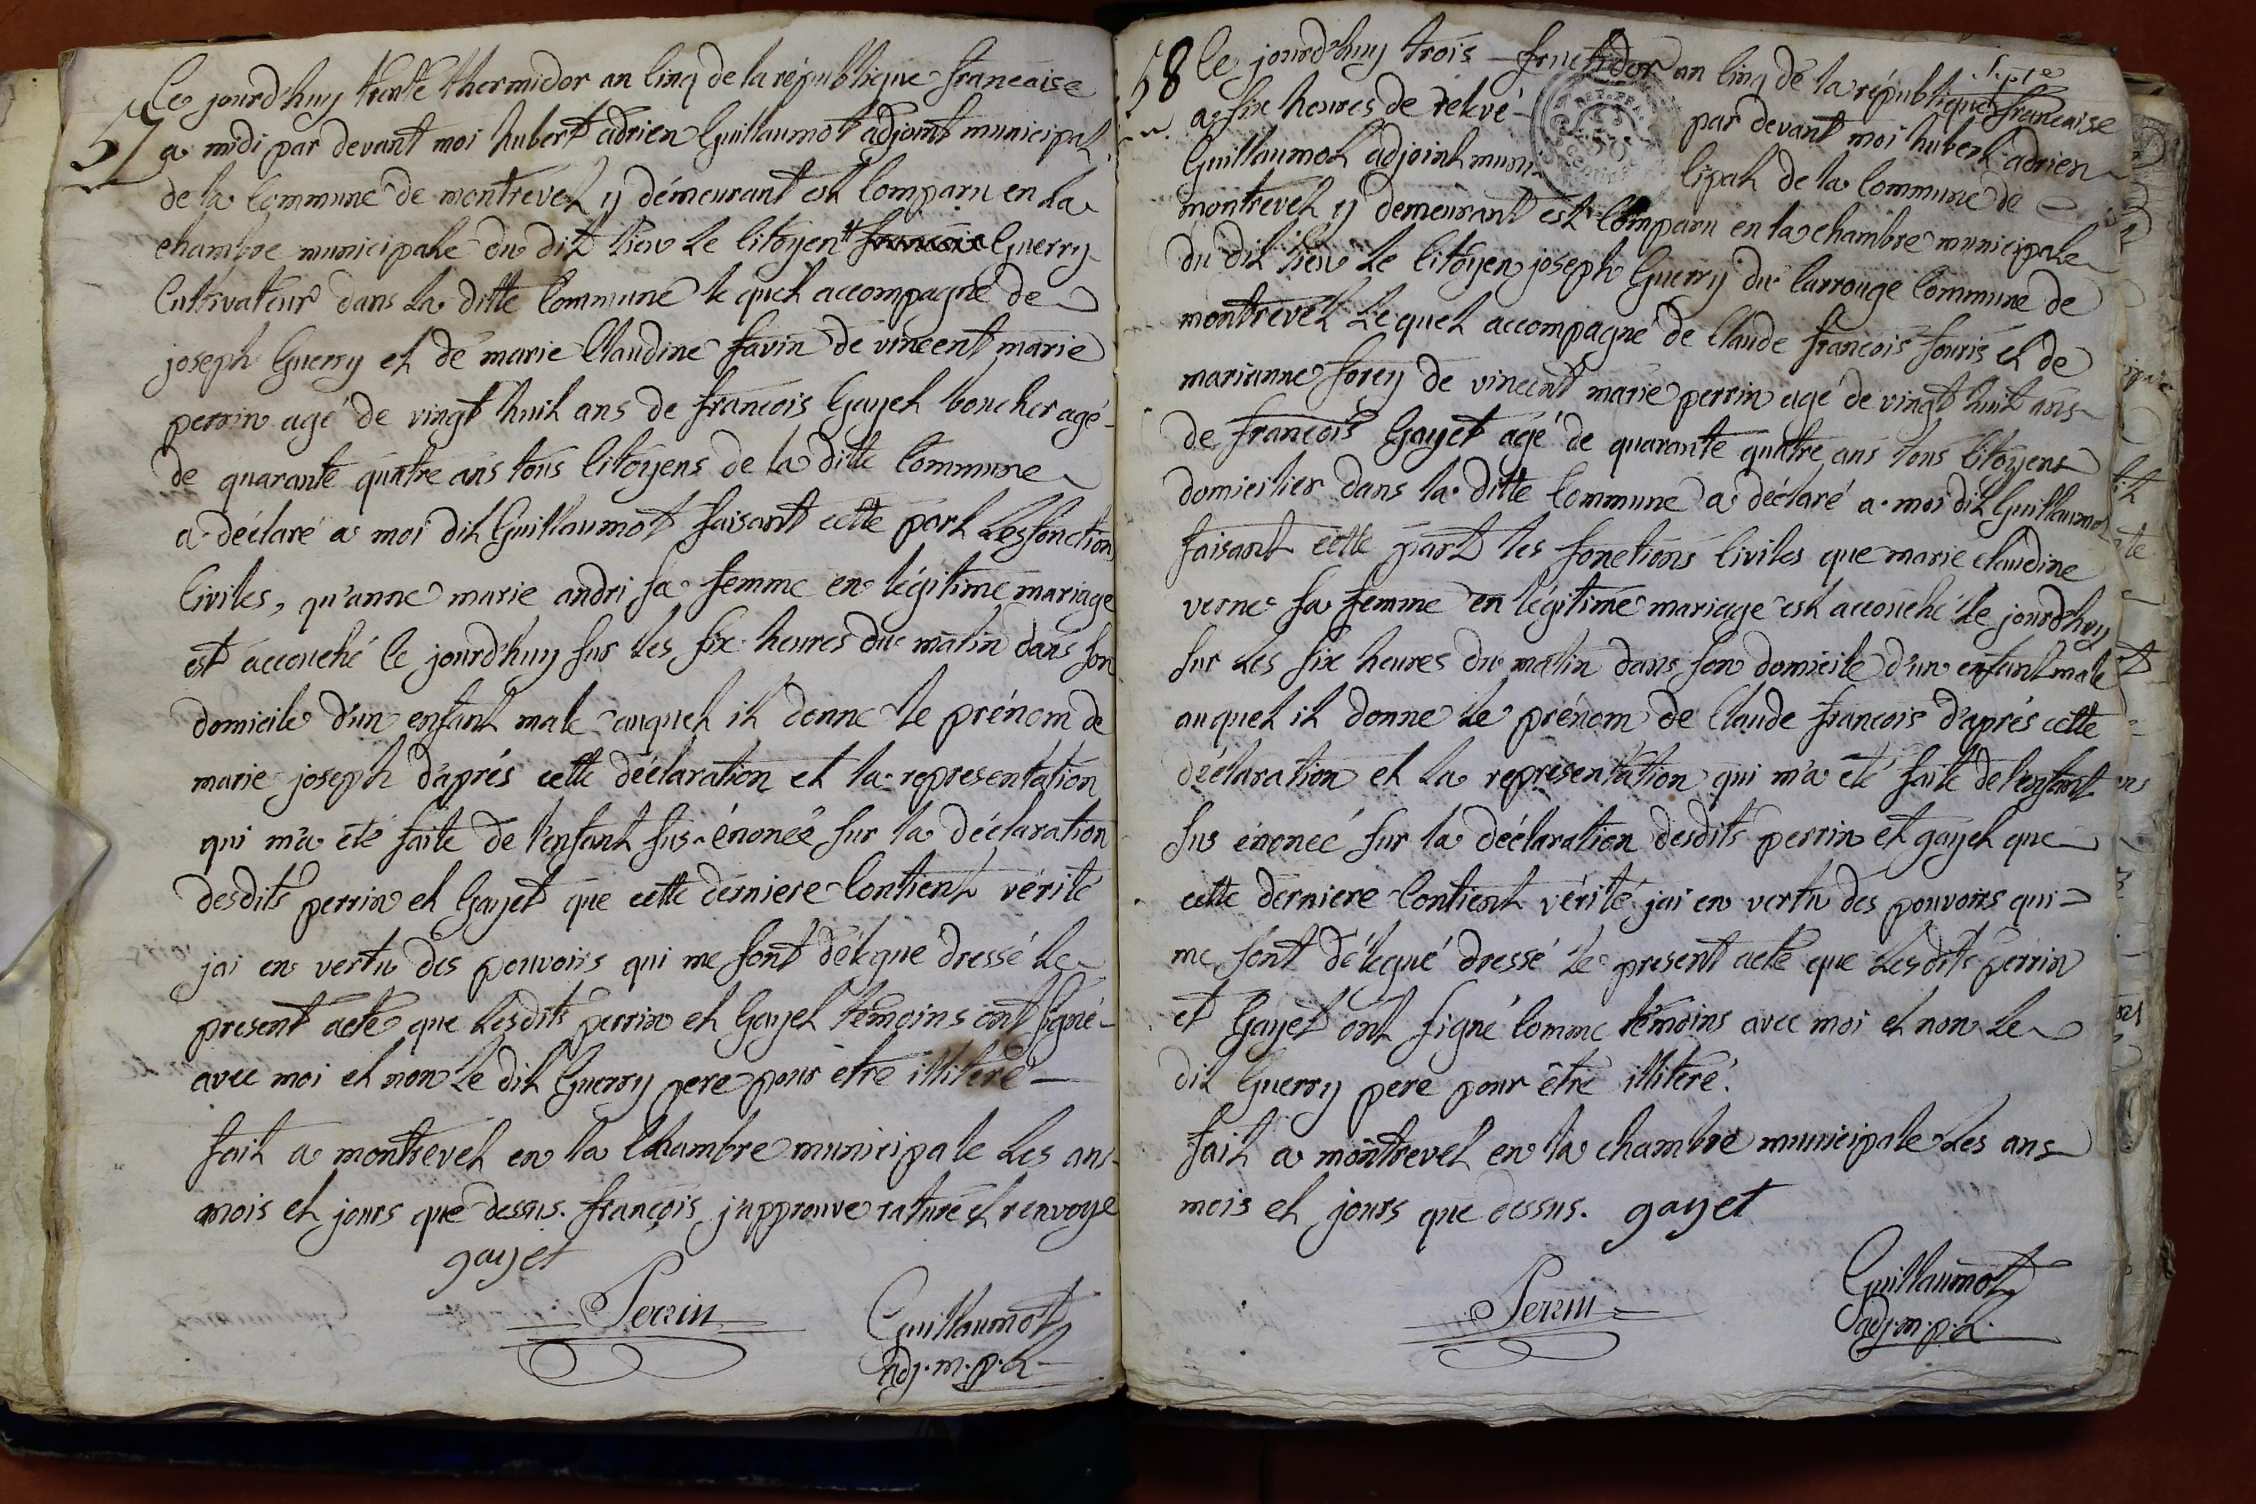 57
Ce jourd'huy trente thermidor an cinq de la république francaise
a midi par devant moi hubert adrien Guillaumot adjoint municipal
de la Commune de montrevel y démeurant est Comparu en La
chambre municipale du dit lieu Le Citoyen francois Guerry
Cultivateur dans La ditte Commune le quel accompagné de
joseph Guerry et de marie Claudine favin de vincent marie
perrin agé de vingt huit ans de francois Gayet boucher agé
de quarante quatre ans tous Citoyens de la ditte Commune
a déclaré a moi dit Guillaumot faisant cette part Les fonction
Civiles, qu'anne marie andri sa femme en légitime mariage
est accouché le jourd'huy sur les six heures du matin dans son
domicile d'un enfant male auquel il donne le prénom de
marie joseph d'aprés cette déclaration et la representation
qui m'a été faite de l'enfant sus énoncé sur la déclaration
desdits perrin et Gayet que cette derniere Contient vérité
jai en vertu des pouvoirs qui me sont délegué dressé le
present acte que Lesdits perrin et Gayet témoins ont signé
avec moi et non Le dit Guerry pere pour etre illiteré
fait a montrevel en la Chambre municipale Les ans
mois et jours que dessus. françois japprouve rature et renvoye
gayet
Perrin
Guillaumot
adj. m. p. l.
58
Ce jourd'huy trois fructidor an Cinq de la république francaise
a six heures de relvé par devant moi hubert adrien
Guillaumot adjoint municipal de la Commune de
montrevel y demeurant est Comparu en la chambre municipale
du dit lieu Le Citoyen joseph Guerry du Carrouge Commune de
montrevel Lequel accompagné de Claude francois souris et de
marianne forey de vincent marie perrin agé de vingt huit ans
de francois Gayet agé de quarante quatre ans tous Citoyens
domicilier dans la ditte Commune a déclaré a moi dit Guillaumot
faisant cette part les fonctions Civiles que marie claudine
verne sa femme en légitime mariage est accouché le jourd'huy
sur Les six heures du matin dans son domicile d'un enfant male
auquel il donne le prénom de Claude francois d'aprés cette
déclaration et La representation qui m'a été faite de l'enfant
sus énoncé sur la déclaration desdits perrin et gayet que
cette derniere Contient vérité jai en vertu des pouvoirs qui
me sont délegué dressé le present acte que Lesdits perrin
et Gayet ont signé Comme témoins avec moi et non Le
dit Guerry pere pour être illiteré.
fait a montrevel en la chambre municipale Les ans
mois et jours que dessus. gayet
Perrin
Guillaumot
adj. m. p. l.